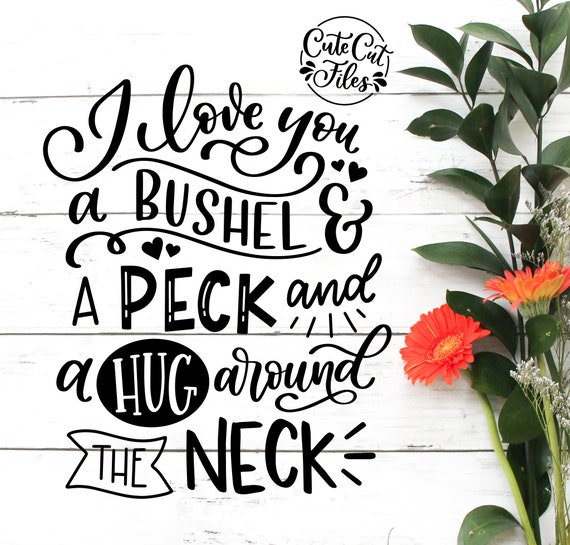 Cute Cut
Files
I love you
a BUSHEL &
A PECK and
a HUG around
THE NECK